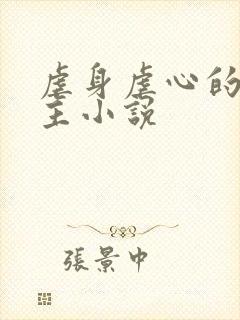 虐身虐心的
主小説
張景中